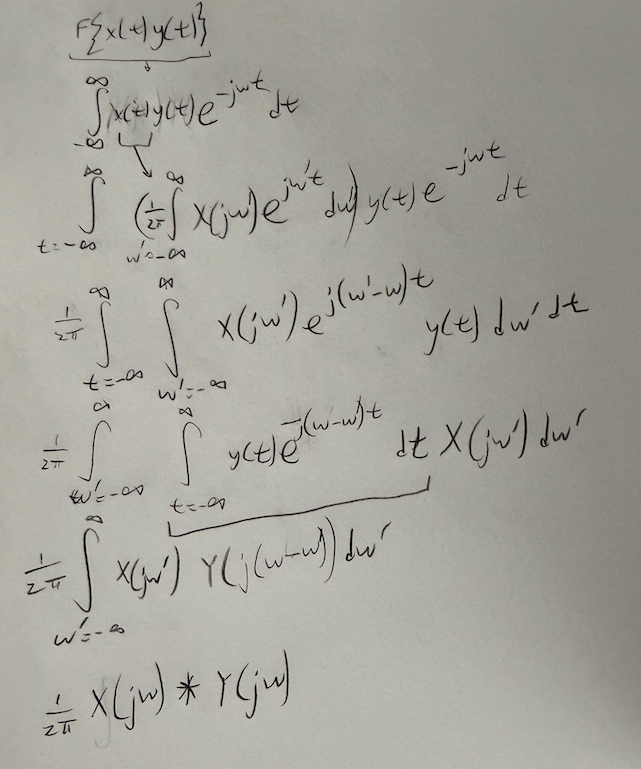 F{x(t)y(t)}
∫_{-∞}^{∞} x(t)y(t)e^{-jwt} dt
∫_{t=-∞}^{∞} (1/2π ∫_{w'=-∞}^{∞} X(jw')e^{jw't} dw') y(t)e^{-jwt} dt
1/2π ∫_{t=-∞}^{∞} ∫_{w'=-∞}^{∞} X(jw')e^{j(w'-w)t} y(t) dw' dt
1/2π ∫_{w'=-∞}^{∞} ∫_{t=-∞}^{∞} y(t)e^{-j(w-w')t} dt X(jw') dw'
1/2π ∫_{w'=-∞}^{∞} X(jw') Y(j(w-w')) dw'
1/2π X(jw) * Y(jw)